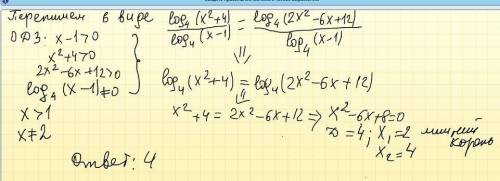 Перепишем в виде log₄(x²+4)/log₄(x-1) = log₄(2x²-6x+12)/log₄(x-1)
ОДЗ: x-1>0
x²+4>0
2x²-6x+12>0
log₄(x-1)≠0
x>1
x≠2
⇓
log₄(x²+4) = log₄(2x²-6x+12)
⇓
x²+4 = 2x²-6x+12 ⇒ x²-6x+8=0
D=4; x₁=2 лишний корень
x₂=4
Ответ: 4